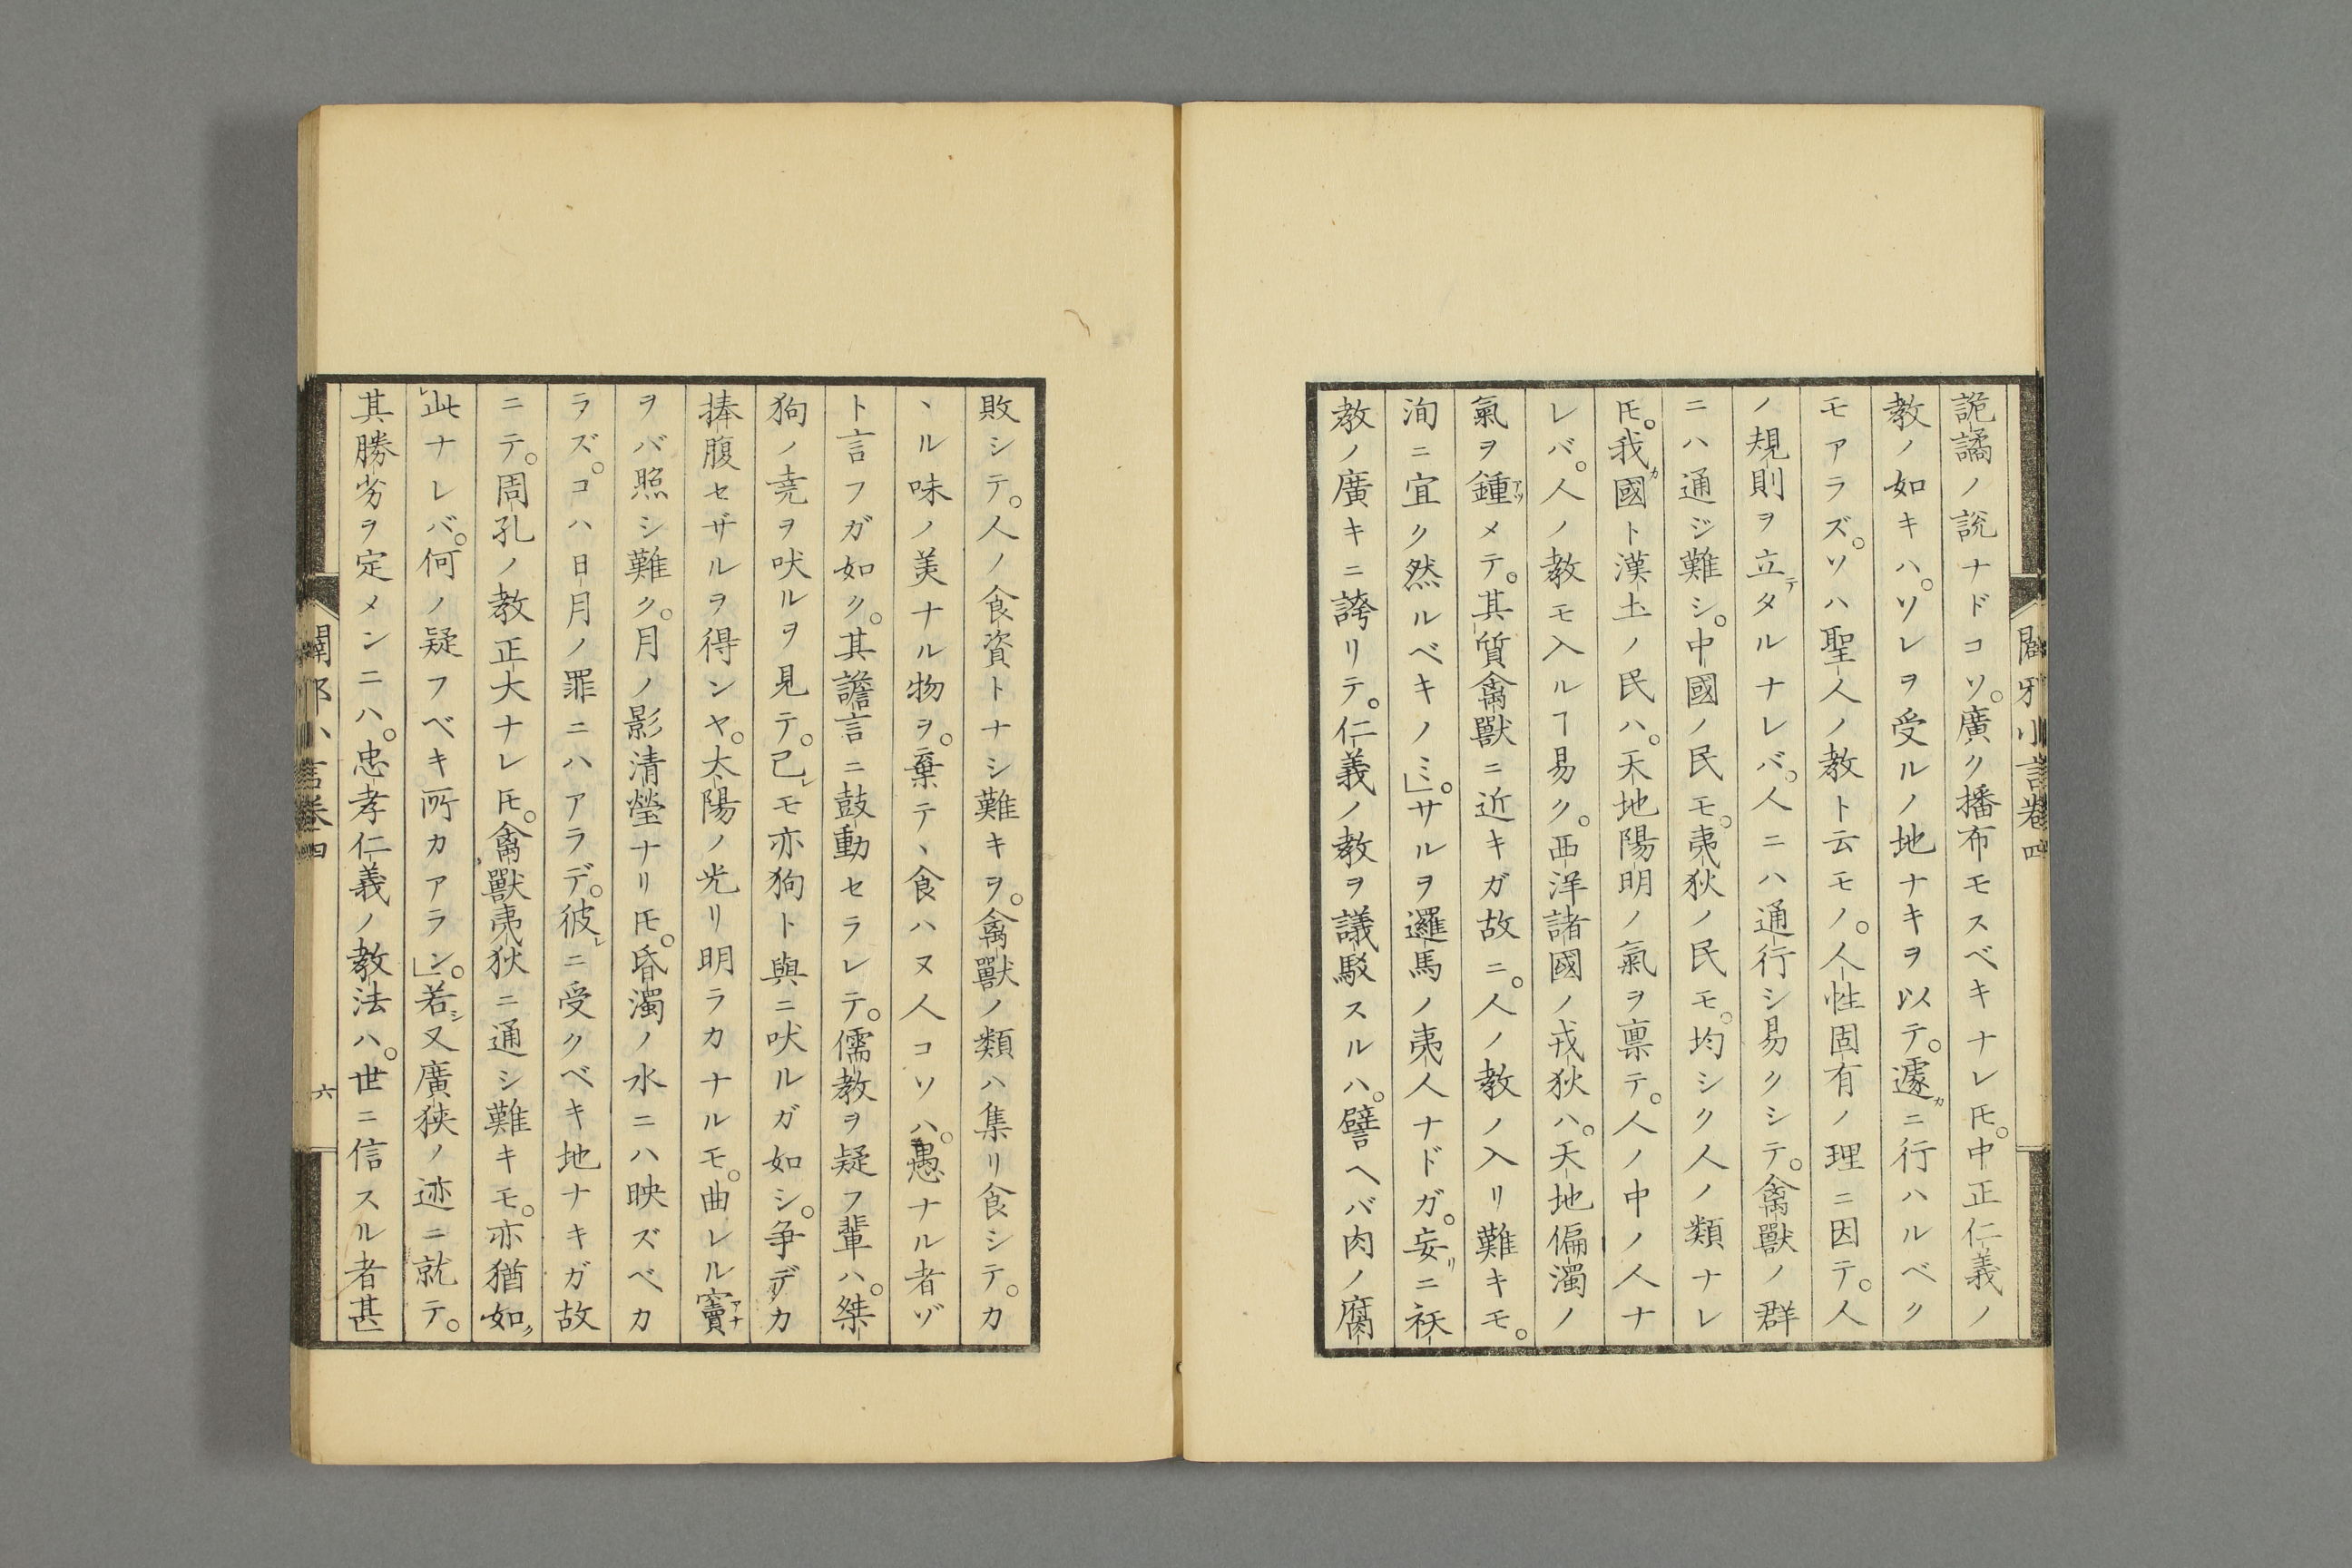 闢邪小言卷四
詭譎ノ説ナドコソ。廣ク播布モスベキナレ𪜈。中正仁義ノ
教ノ如キハ。ソレヲ受ルノ地ナキヲ以テ。遽カニ行ハルベク
モアラズ。ソハ聖人ノ教ト云モノ。人性固有ノ理ニ因テ。人
ノ規則ヲ立テタルナレバ。人ニハ通行シ易クシテ。禽獸ノ群
ニハ通ジ難シ。中國ノ民モ。夷狄ノ民モ。均シク人ノ類ナレ
𪜈。我カ國ト漢土ノ民ハ。天地陽明ノ氣ヲ禀テ。人ノ中ノ人ナ
レバ。人ノ教モ入ルヿ易ク。西洋諸國ノ戎狄ハ。天地偏濁ノ
氣ヲ鍾アツメテ。其質禽獸ニ近キガ故ニ。人ノ教ノ入リ難キモ。
洵ニ宜ク然ルベキノミ」。サルヲ邏馬ノ夷人ナドガ。妄リニ祆
教ノ廣キニ誇リテ。仁義ノ教ヲ議駁スルハ。譬ヘバ肉ノ腐
敗シテ。人ノ食資トナシ難キヲ。禽獸ノ類ハ集リ食シテ。カ
ヽル味ノ美ナル物ヲ。棄テヽ食ハヌ人コソハ。愚ナル者ゾ
ト言フガ如ク。其譫言ニ鼓動セラレテ。儒教ヲ疑フ輩ハ。桀
狗ノ堯ヲ吠ルヲ見テ。己レモ亦狗ト與ニ吠ルガ如シ。争デカ
捧腹セザルヲ得ンヤ。太陽ノ光リ明ラカナルモ。曲レル竇アナ
ヲバ照シ難ク。月ノ影清瑩ナリ𪜈。昏濁ノ水ニハ映ズベカ
ラズ。コハ日月ノ罪ニハアラデ。彼レニ受クベキ地ナキガ故
ニテ。周孔ノ教正大ナレ𪜈。禽獸夷狄ニ通シ難キモ。亦猶如ク
此ナレバ。何ノ疑フベキ所カアラン」。若シ又廣狭ノ迹ニ就テ。
其勝劣ヲ定メンニハ。忠孝仁義ノ教法ハ。世ニ信スル者甚
闢邪小言卷四
六